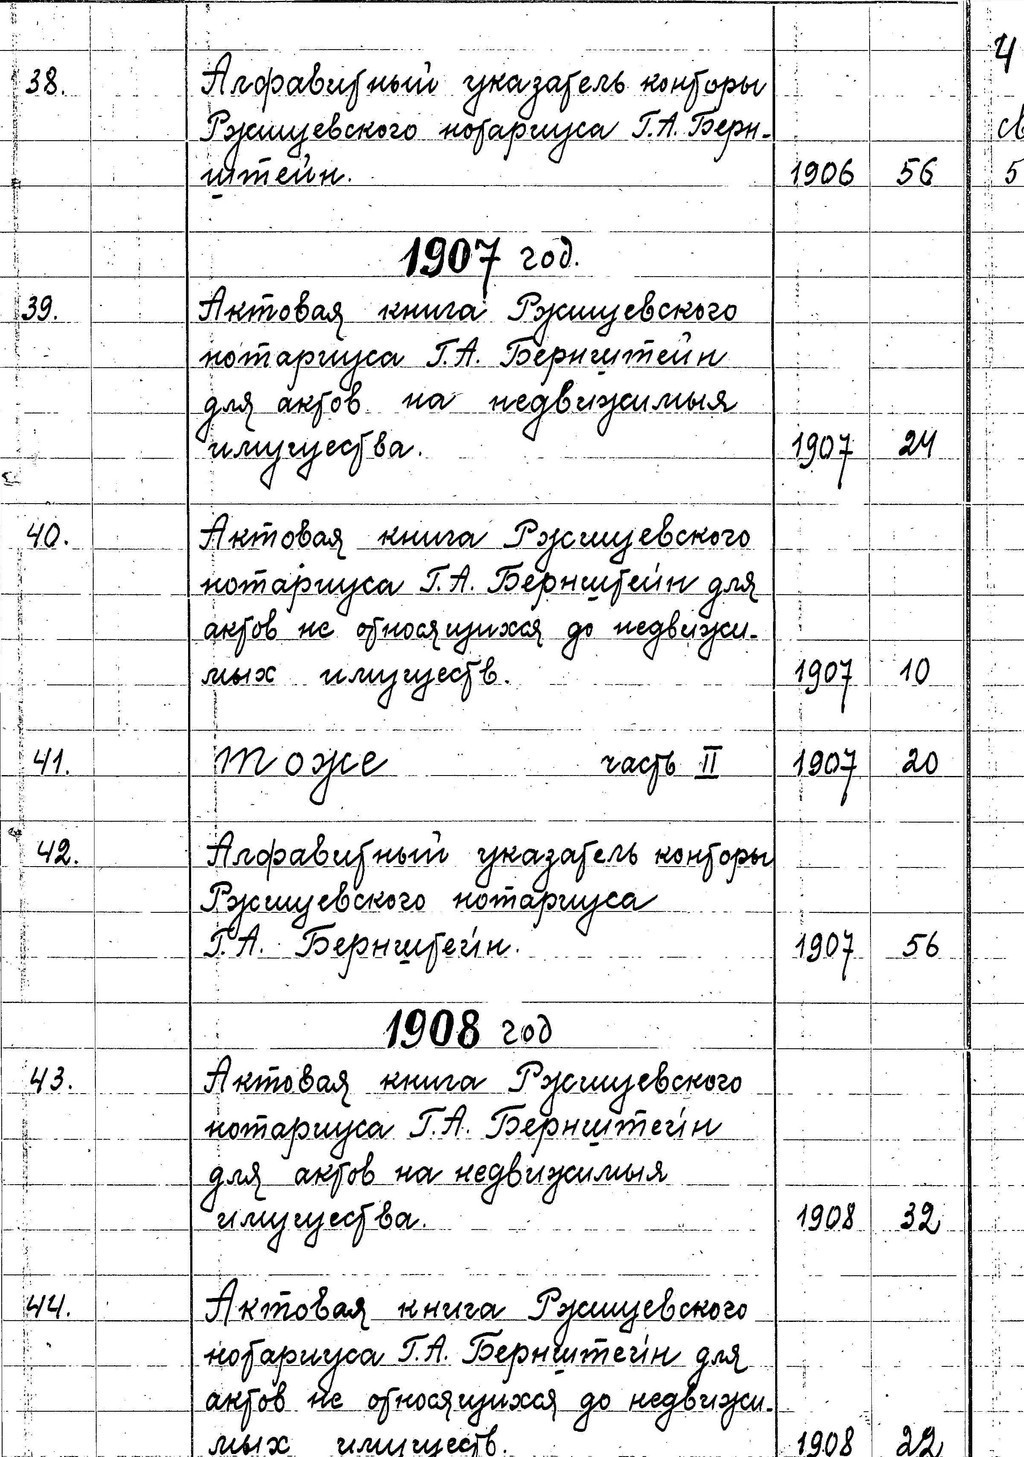 38. Алфавитный указатель конторы
Ржищевского нотариуса Г.А. Берн-
штейн. 1906 56
1907 год.
39. Актовая книга Ржищевского
нотариуса Г.А. Бернштейн
для актов на недвижимыя
имущества. 1907 24
40. Актовая книга Ржищевского
нотариуса Г.А. Бернштейн для
актов не относящихся до недвижи-
мых имуществ. 1907 10
41. Тоже часть II 1907 20
42. Алфавитный указатель конторы
Ржищевского нотариуса
Г.А. Бернштейн. 1907 56
1908 год
43. Актовая книга Ржищевского
нотариуса Г.А. Бернштейн
для актов на недвижимыя
имущества. 1908 32
44. Актовая книга Ржищевского
нотариуса Г.А. Бернштейн для
актов не относящихся до недвижи-
мых имуществ. 1908 22